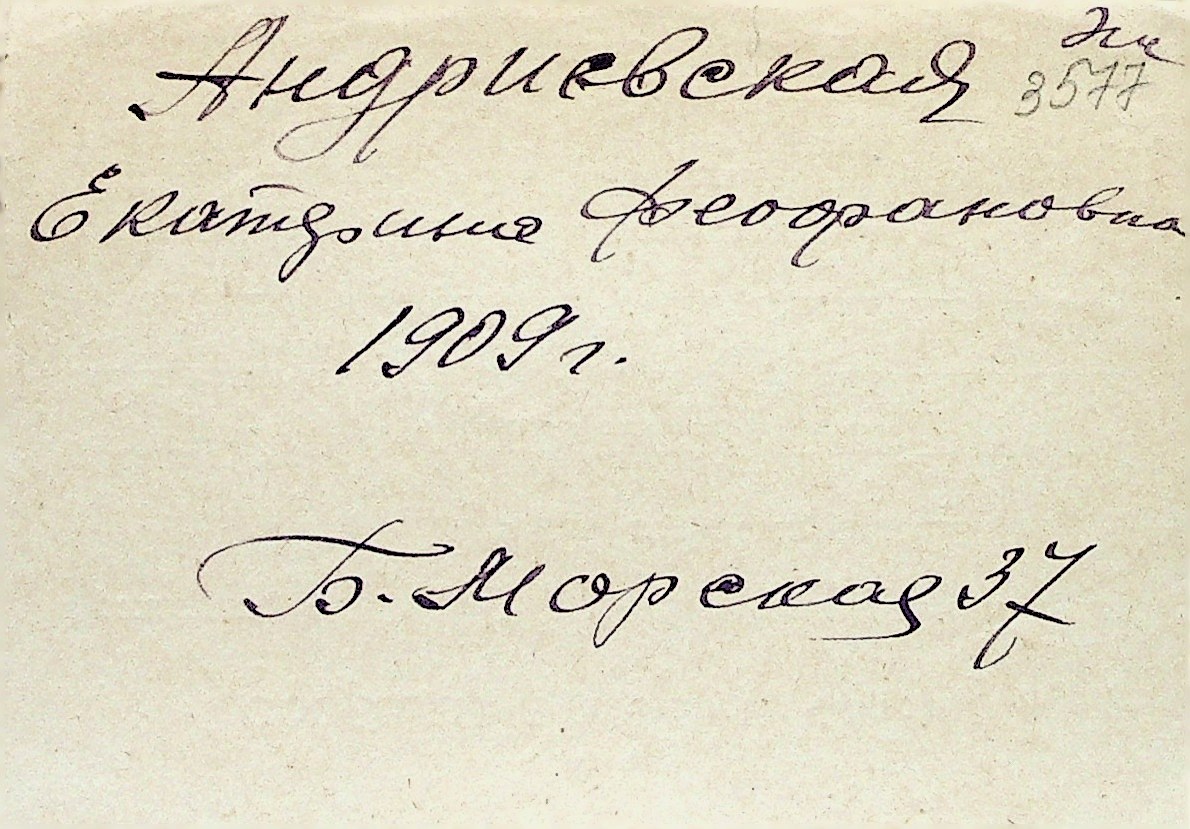 Андриевская
3577
Екатерина Феофановна
1909 г.
Б. Морская 37